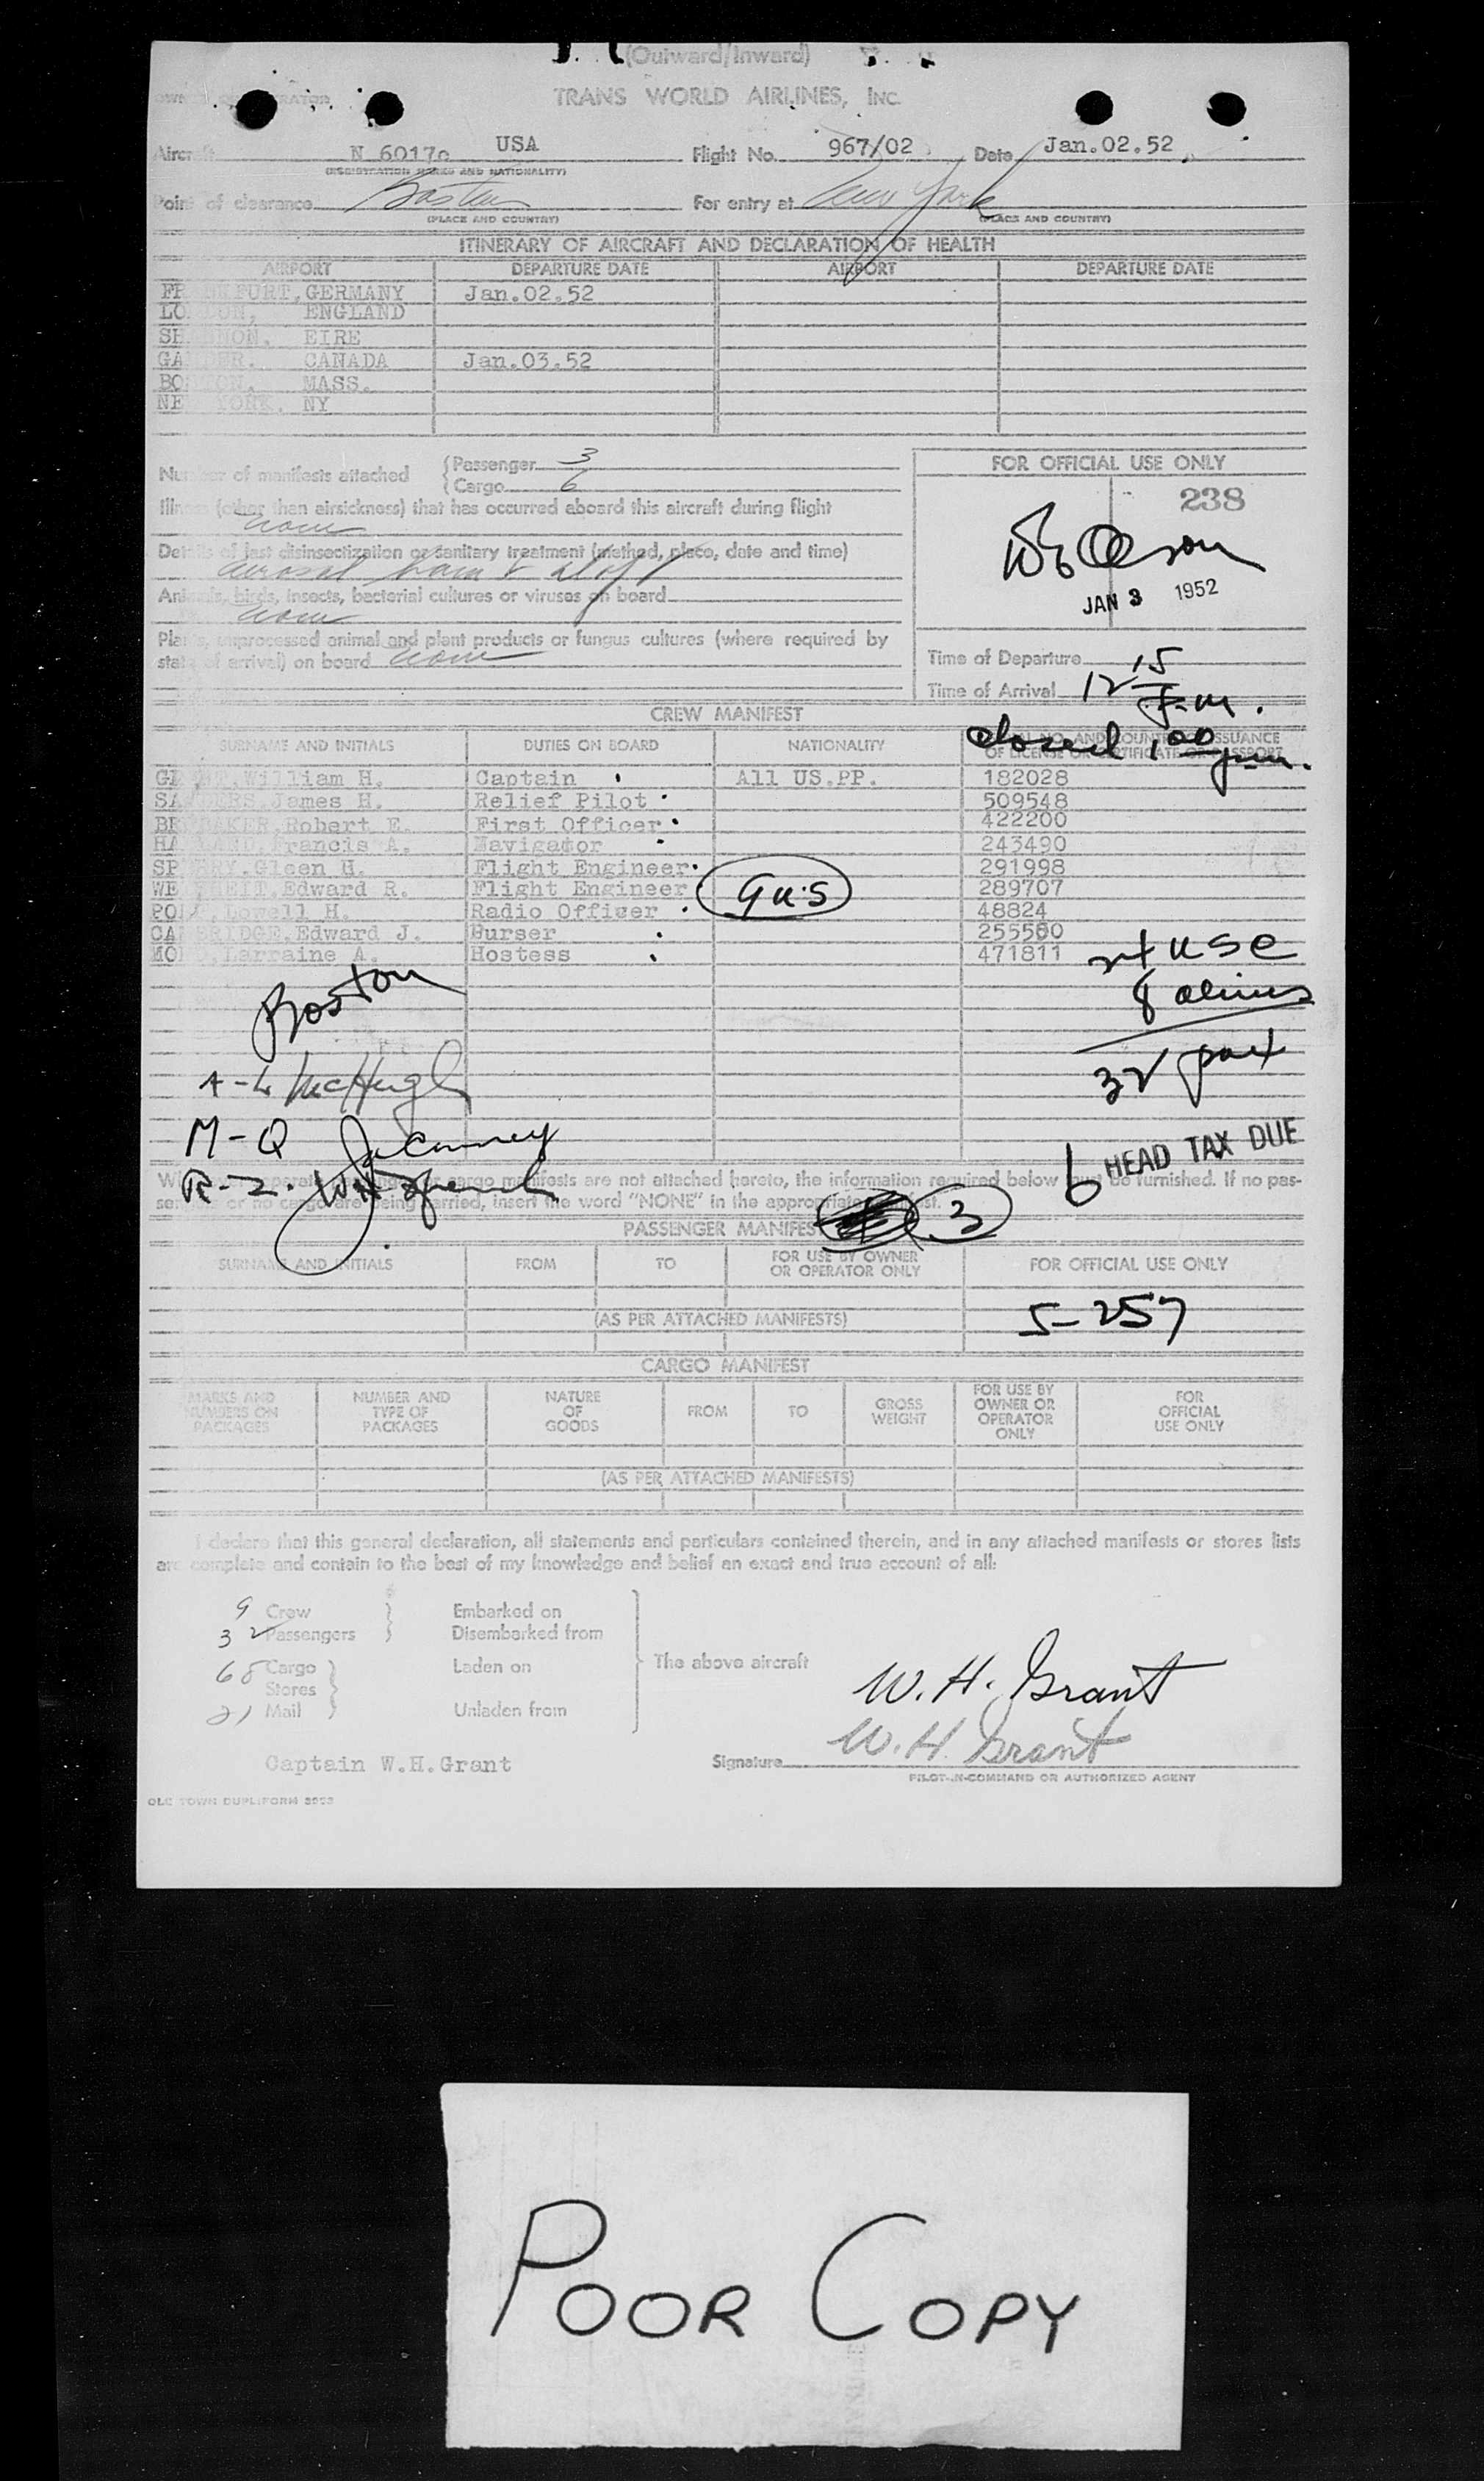 (Outward/Inward)
TRANS WORLD AIRLINES, INC.
Aircraft N 6017c USA Flight No. 967/02 Date Jan.02.52
(REGISTRATION MARKS AND NATIONALITY)
Point of clearance Boston For entry at New York
(PLACE AND COUNTRY) (PLACE AND COUNTRY)
ITINERARY OF AIRCRAFT AND DECLARATION OF HEALTH
AIRPORT DEPARTURE DATE AIRPORT DEPARTURE DATE
FRANKFURT, GERMANY Jan.02.52
LONDON, ENGLAND
SHANNON, EIRE
GANDER, CANADA Jan.03.52
BOSTON, MASS.
NEW YORK, NY
Number of manifests attached
Passenger 3
Cargo 6
FOR OFFICIAL USE ONLY
238
Illness (other than airsickness) that has occurred aboard this aircraft during flight
none
Details of last disinsectization or sanitary treatment (method, place, date and time)
aerosol
Animals, birds, insects, bacterial cultures or viruses on board
none
JAN 3 1952
Plants, unprocessed animal and plant products or fungus cultures (where required by
state of arrival) on board none
Time of Departure
Time of Arrival 12 15 P.m.
closed 1 00 pm.
CREW MANIFEST
SURNAME AND INITIALS DUTIES ON BOARD NATIONALITY SERIAL NO. AND COUNTRY OF ISSUANCE
OF LICENSE OR CERTIFICATE OR PASSPORT
GRANT, William H. Captain All US.PP. 182028
James H. Relief Pilot 509548
Robert E. First Officer 422200
Francis A. Navigator 243490
Gleen H. Flight Engineer 291998
Edward R. Flight Engineer 289707
Lowell H. Radio Officer 48824
CAMBRIDGE, Edward J. Purser 255550
Larraine A. Hostess 471811
9 U.S
24 USC
8 aliens
32 pax
Boston
A-L McHugh
M-Q
R-Z.
6 HEAD TAX DUE
cargo manifests are not attached hereto, the information required below must be furnished. If no pas-
or no cargo are being carried, insert the word "NONE" in the appropriate
PASSENGER MANIFEST 3
SURNAME AND INITIALS FROM TO FOR USE BY OWNER
OR OPERATOR ONLY FOR OFFICIAL USE ONLY
(AS PER ATTACHED MANIFESTS) 5-257
CARGO MANIFEST
MARKS AND
NUMBERS ON
PACKAGES
NUMBER AND
TYPE OF
PACKAGES
NATURE
OF
GOODS
FROM
TO
GROSS
WEIGHT
FOR USE BY
OWNER OR
OPERATOR
ONLY
FOR
OFFICIAL
USE ONLY
(AS PER ATTACHED MANIFESTS)
I declare that this general declaration, all statements and particulars contained therein, and in any attached manifests or stores lists
are complete and contain to the best of my knowledge and belief an exact and true account of all:
9 Crew Embarked on
32 Passengers Disembarked from
68 Cargo Laden on The above aircraft
Stores
21 Mail Unladen from
W. H. Grant
Captain W.H.Grant Signature W. H. Grant
PILOT-IN-COMMAND OR AUTHORIZED AGENT
POOR COPY